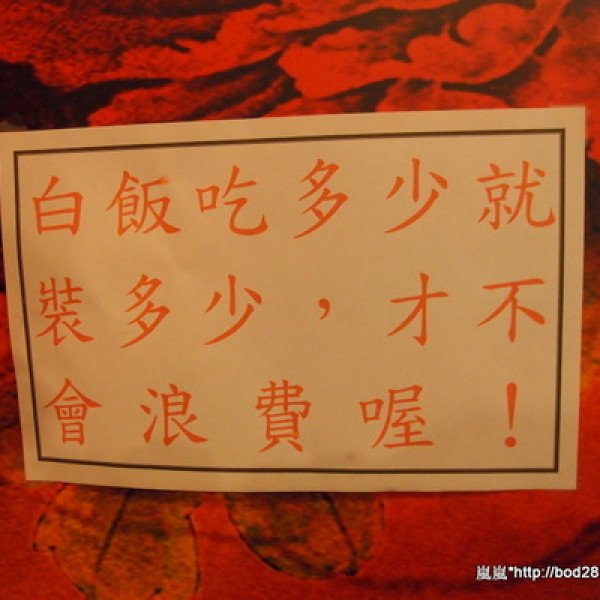 白飯吃多少就
裝多少，才不
會浪費喔！
嵐嵐*http://bod28